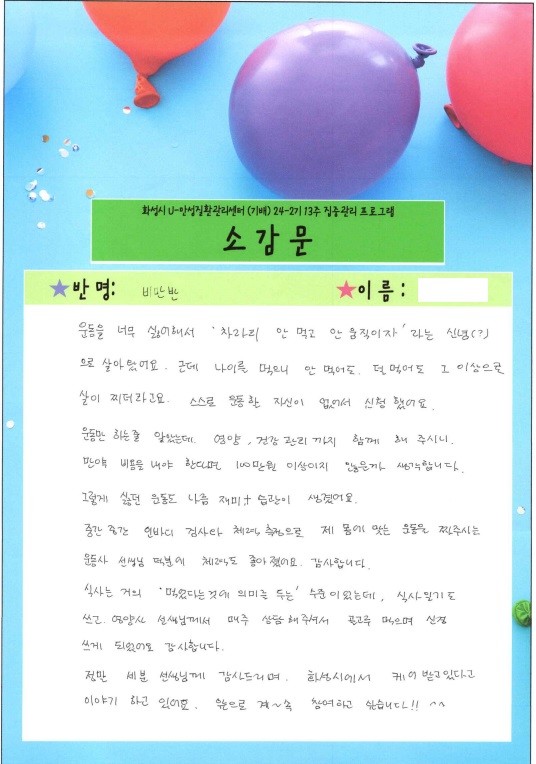 화성시 U-만성질환관리센터(기배) 24-2기 13주 집중관리 프로그램
소감문
반 명: 비만반 이름:
운동을 너무 싫어해서 '차라리 안 먹고 안 움직이자' 라는 신념(?)
으로 살아왔어요. 근데 나이를 먹으니 안 먹어도. 덜 먹어도 그 이상으로
살이 찌더라고요. 스스로 운동할 자신이 없어서 신청했어요.
운동만 하는줄 알았는데. 영양, 건강관리까지 함께 해 주시니.
만약 비용을 내야 한다면 100만원 이상이지 않을까 생각합니다.
그렇게 싫던 운동도 나름 재미+습관이 생겼어요.
중간중간 인바디 검사와 체력측정으로 제 몸에 맞는 운동을 찍주시는
운동사 선생님 덕분에 체력도 좋아졌어요. 감사합니다.
식사는 거의 '먹었다는것에 의미를 두는' 수준이었는데, 식사일기도
쓰고. 영양사 선생님께서 매주 상담해주셔서 골고루 먹으며 신경
쓰게 되었어요 감사합니다.
정말 세분 선생님께 감사드리며. 화성시에서 케어 받고있다고
이야기 하고 있어요. 앞으로 계~속 참여하고 싶습니다!! ^^